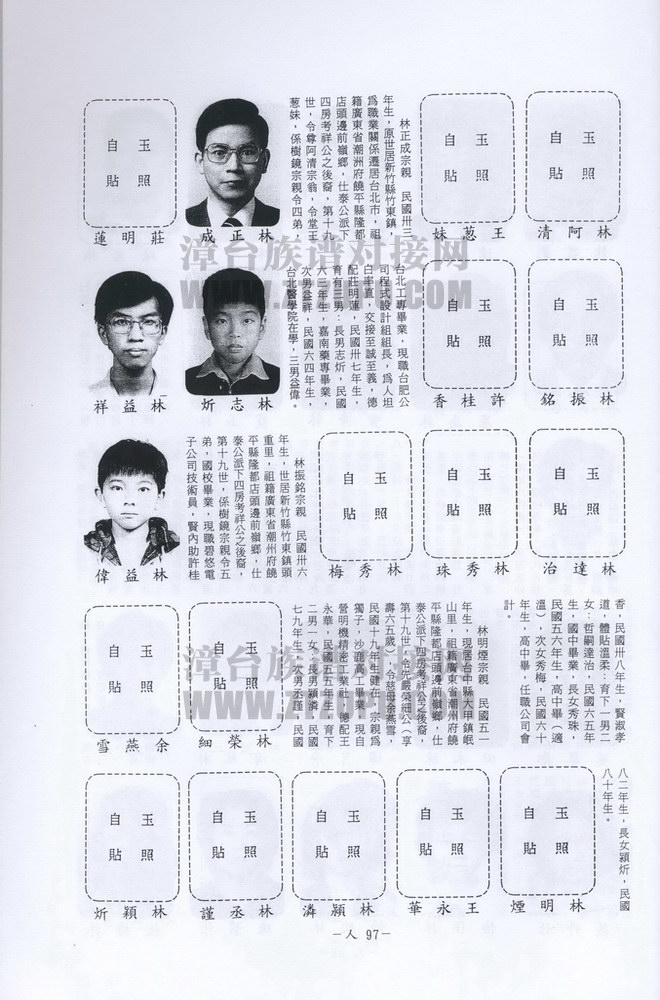 玉照自貼
林阿清
玉照自貼
王蔥妹
林正成宗親　民國卅三
年生，原世居新竹縣竹東鎮，
為職業關係遷居台北市，祖
籍廣東省潮洲府饒平縣隆都
店頭邊前嶺鄉，仕泰公派下
四房考祥公之後裔，第十九
世，令尊阿清宗翁，令堂王
蔥妹，係樹鏡宗親令四弟，
林正成
玉照自貼
莊明蓮
玉照自貼
林振銘
玉照自貼
許桂香
台北工專畢業，現職台肥公
司程式設計組組長，為人坦
白率直，交接至誠至義，德
配莊明蓮，民國卅七年生，
育有三男：長男志炘，民國
六三年生，嘉南藥專畢業，
次男益祥，民國六四年生，
台北醫學院在學，三男益偉。
林志炘
林益祥
玉照自貼
林達治
玉照自貼
林秀珠
玉照自貼
林秀梅
林振銘宗親　民國卅六
年生，世居新竹縣竹東鎮頭
重里，祖籍廣東省潮州府饒
平縣隆都店頭邊前嶺鄉，仕
泰公派下四房考祥公之後裔，
第十九世，係樹鏡宗親令五
弟，國校畢業，現職碧悠電
子公司技術員，賢內助許桂
林益偉
香，民國卅八年生，賢淑孝
道，體貼溫柔；育下一男二
女：哲嗣達治，民國六五年
生，國中畢業，長女秀珠，
民國五六年生，高中畢（適
溫），次女秀梅，民國六十
年生，高中畢，任職公司會
計。
林明煙宗親　民國五一
年生，現居台中縣大甲鎮岷
山里，祖籍廣東省潮州府饒
平縣隆都店頭邊前嶺鄉，仕
泰公派下四房考祥公之後裔，
第十九世，令先嚴榮細公（享
壽六五歲），令慈母余燕雪，
民國十九年生健在，宗親為
獨子，沙鹿高工畢業，現自
營明機精密工業社，德配王
永華，民國五五年生，育下
二男一女。長男穎潾，民國
七九年生，次男丞謹，民國
玉照自貼
林榮細
玉照自貼
余燕雪
八二年生，長女穎炘，民國
八十年生。
玉照自貼
林明煙
玉照自貼
王永華
玉照自貼
林穎潾
玉照自貼
林丞謹
玉照自貼
林穎炘
－人 97－
漳台族谱对接网
漳台族谱对接网